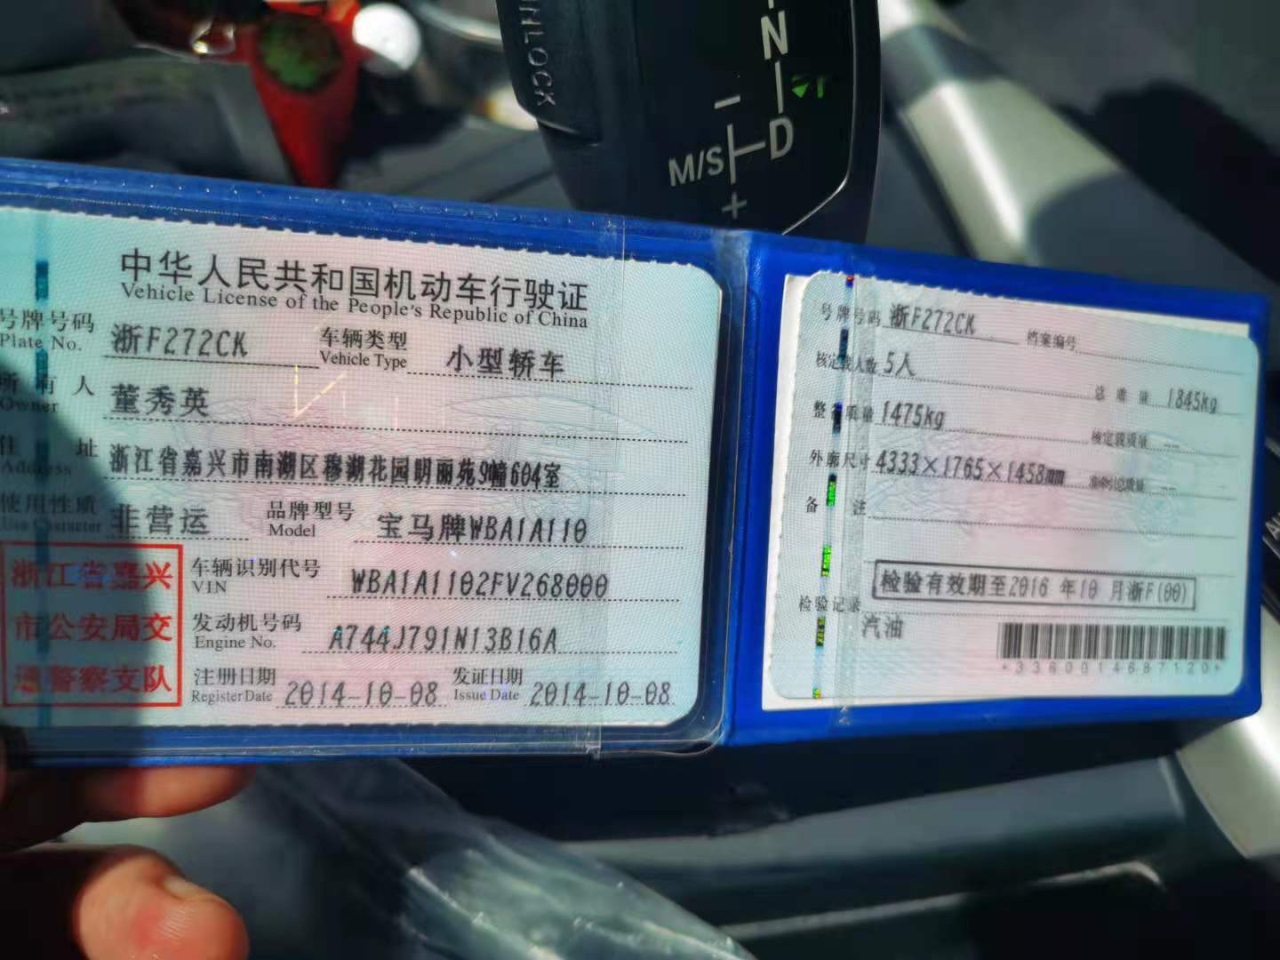 UNLOCK
N
D
M/S
+
中华人民共和国机动车行驶证
Vehicle License of the People's Republic of China
号牌号码 浙F272CK 车辆类型 小型轿车
Plate No. Vehicle Type
所有人 董秀英
Owner
住址 浙江省嘉兴市南湖区穆湖花园明丽苑9幢604室
Address
使用性质 非营运 品牌型号 宝马牌WBA1A110
Use Character Model
浙江省嘉兴
市公安局交
通警察支队
车辆识别代号 WBA1A1102FV268000
VIN
发动机号码 A744J791N13B16A
Engine No.
注册日期 2014-10-08 发证日期 2014-10-08
Register Date Issue Date
号牌号码 浙F272CK 档案编号
核定载人数 5人 总质量 1845kg
整备质量 1475kg 核定载质量 --
外廓尺寸 4333×1765×1458mm 准牵引总质量 --
备注
检验有效期至2016 年10 月浙F(00)
检验记录
汽油
*3380014687120*